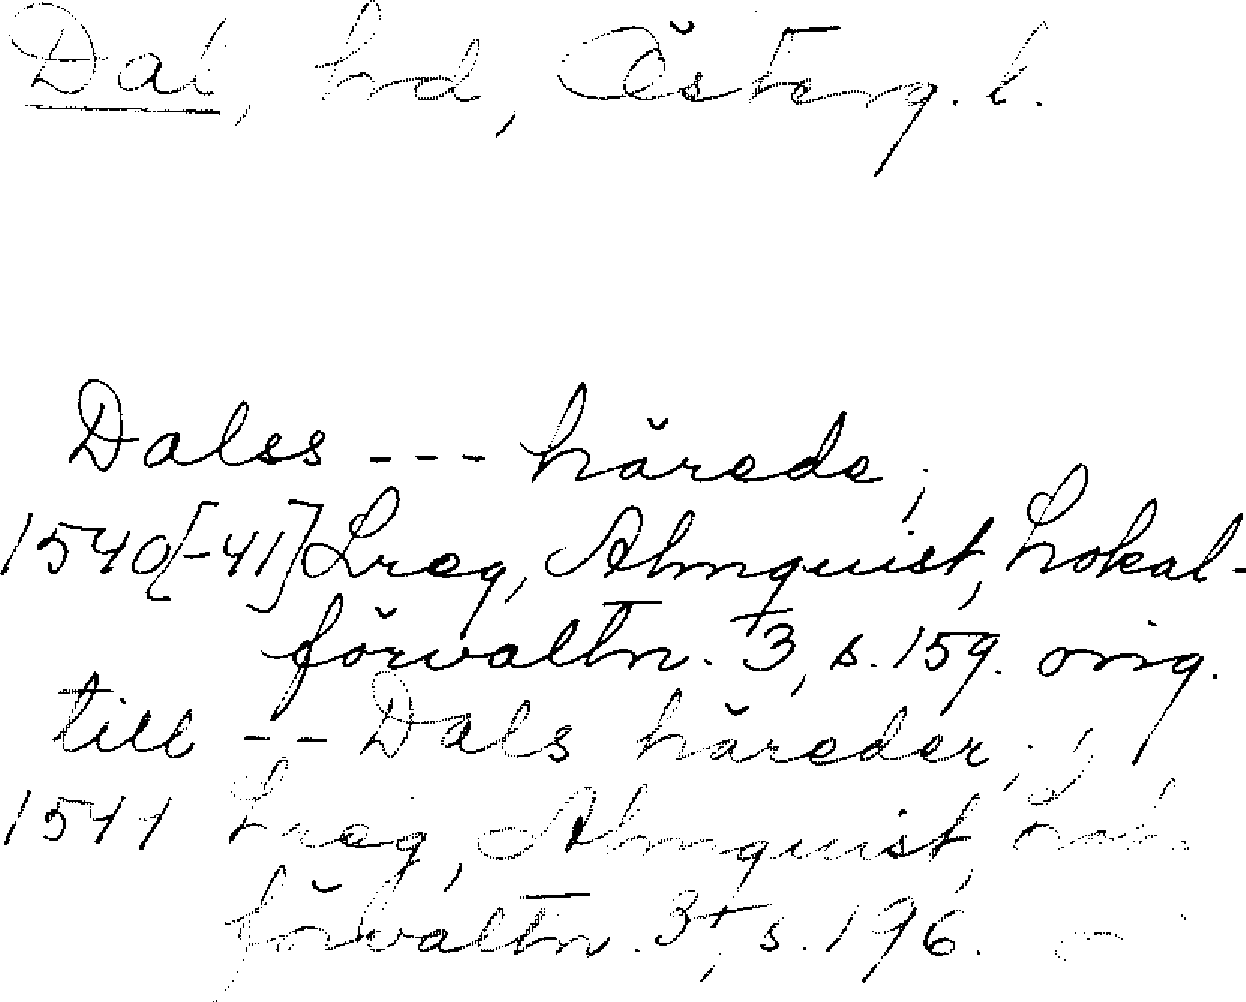 Dal, hd, Österg. l.
Dalss --- härede,
1540[-41] Lreg, Almquist, Lokal-
förvaltn. 3, s. 159. orig.
till -- Dals häreder,
1541 Lreg, Almquist,
förvaltn. 3, s. 196.